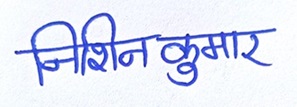 निशिन कुमार